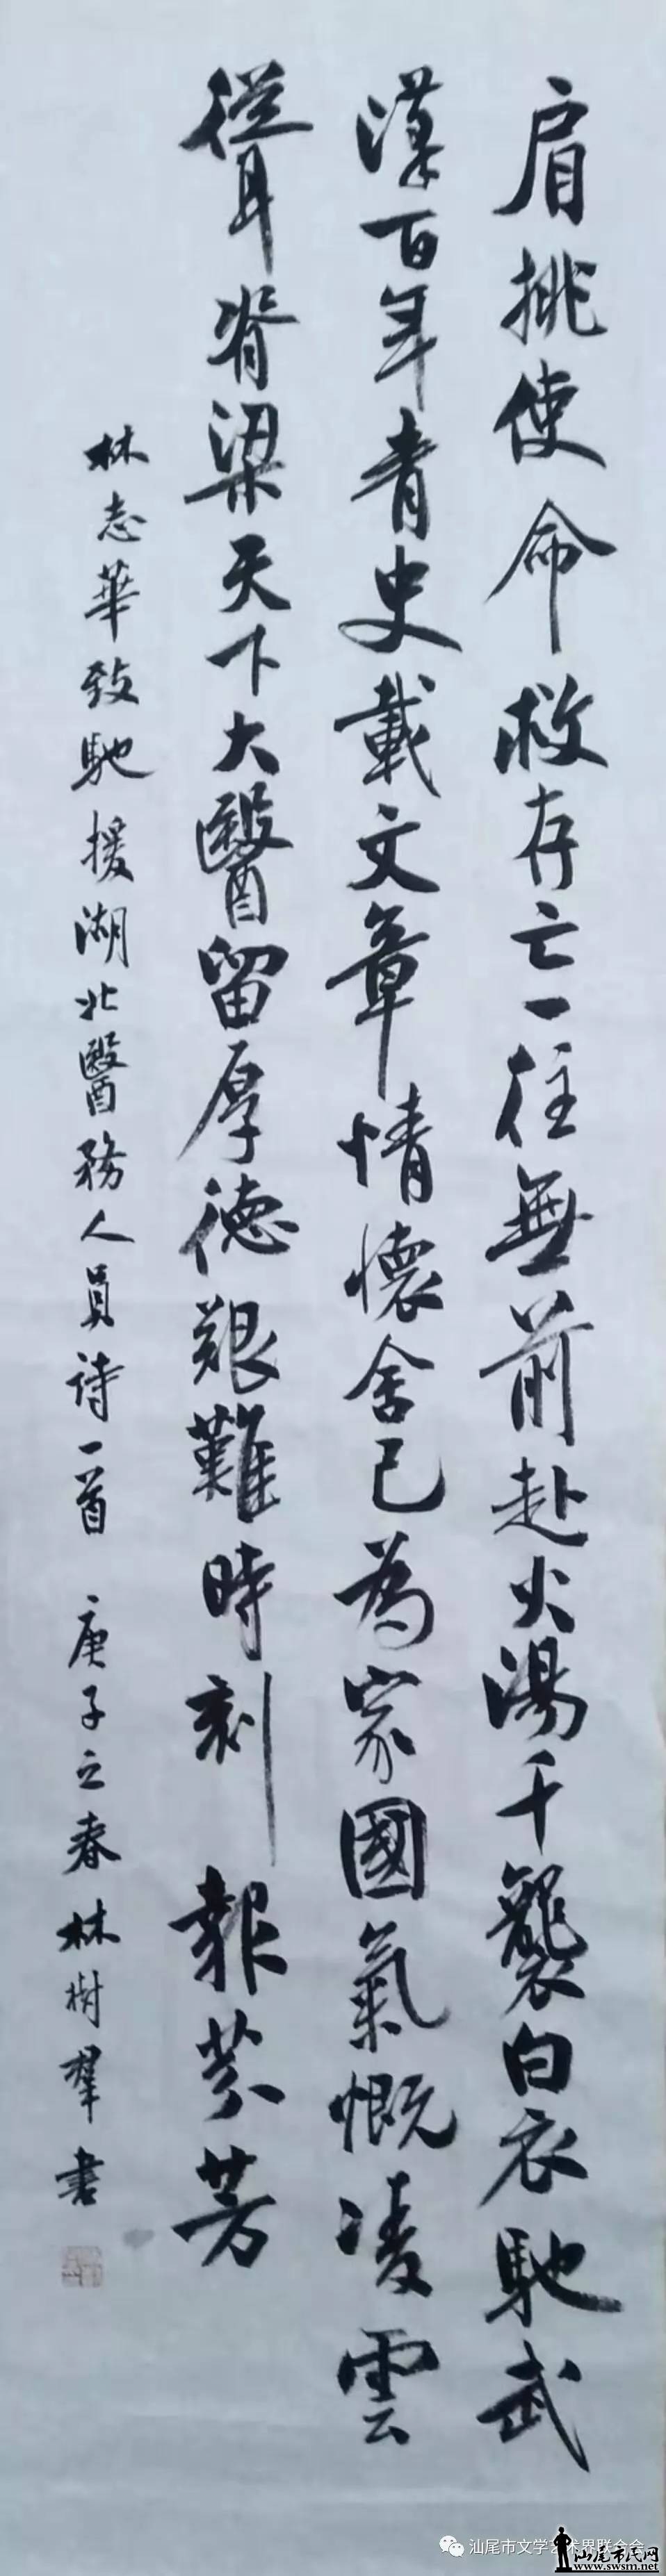 肩挑使命救存亡一往無前赴火湯千襲白衣馳武
漢百年青史載文章情懷舍己為家國氣慨凌雲
聳脊梁天下大醫留厚德艱難時刻報芬芳
林志華致馳援湖北醫務人員詩一首 庚子立春 林樹群書
汕尾市文学艺术界联合会
汕尾市民网
www.swsm.net